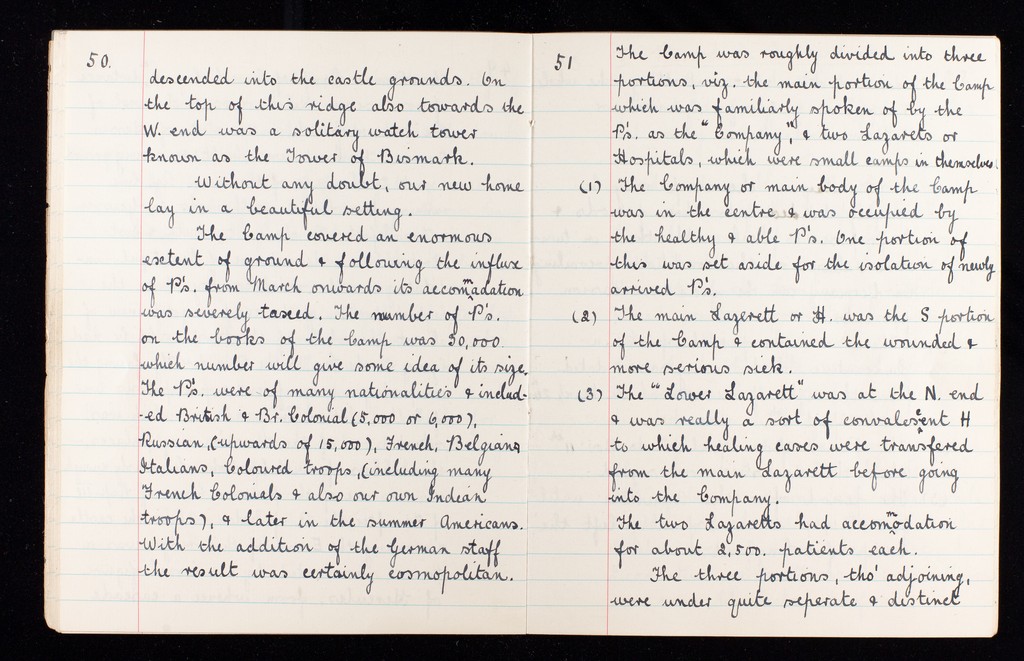 50.
descended into the castle grounds. On
the top of this ridge also towards the
W. end was a solitary watch tower
known as the Tower of Bismark.
Without any doubt, our new home
lay in a beautiful setting.
The Camp covered an enormous
extent of ground & following the influx
of P's. from March onwards its accommadation
was severely taxed. The number of P's.
on the books of the Camp was 30,000.
which number will give some idea of its size.
The P's. were of many nationalities & includ-
-ed British & Br. Colonial (5,000 or 6,000),
Russian, (upwards of 15,000), French, Belgians
Italians, Coloured troops, (including many
French Colonials & also our own Indian
troops), & later in the summer Americans.
With the addition of the German staff
the result was certainly cosmopolitan.
51
The Camp was roughly divided into three
portions, viz. the main portion of the Camp
which was familiarly spoken of by the
P's. as the "Company", & two Lazarets or
Hospitals, which were small camps in themselves.
(1) The Company or main body of the Camp
was in the centre & was occupied by
the healthy & able P's. One portion of
this was set aside for the isolation of newly
arrived P's.
(2) The main Lazerett or H. was the S portion
of the Camp & contained the wounded &
more serious sick.
(3) The "Lower Lazarett" was at the N. end
& was really a sort of convalescent H
to which healing cases were transfered
from the main Lazarett before going
into the Company.
The two Lazaretts had accommodation
for about 2,500. patients each.
The three portions, tho' adjoining,
were under quite seperate & distinct